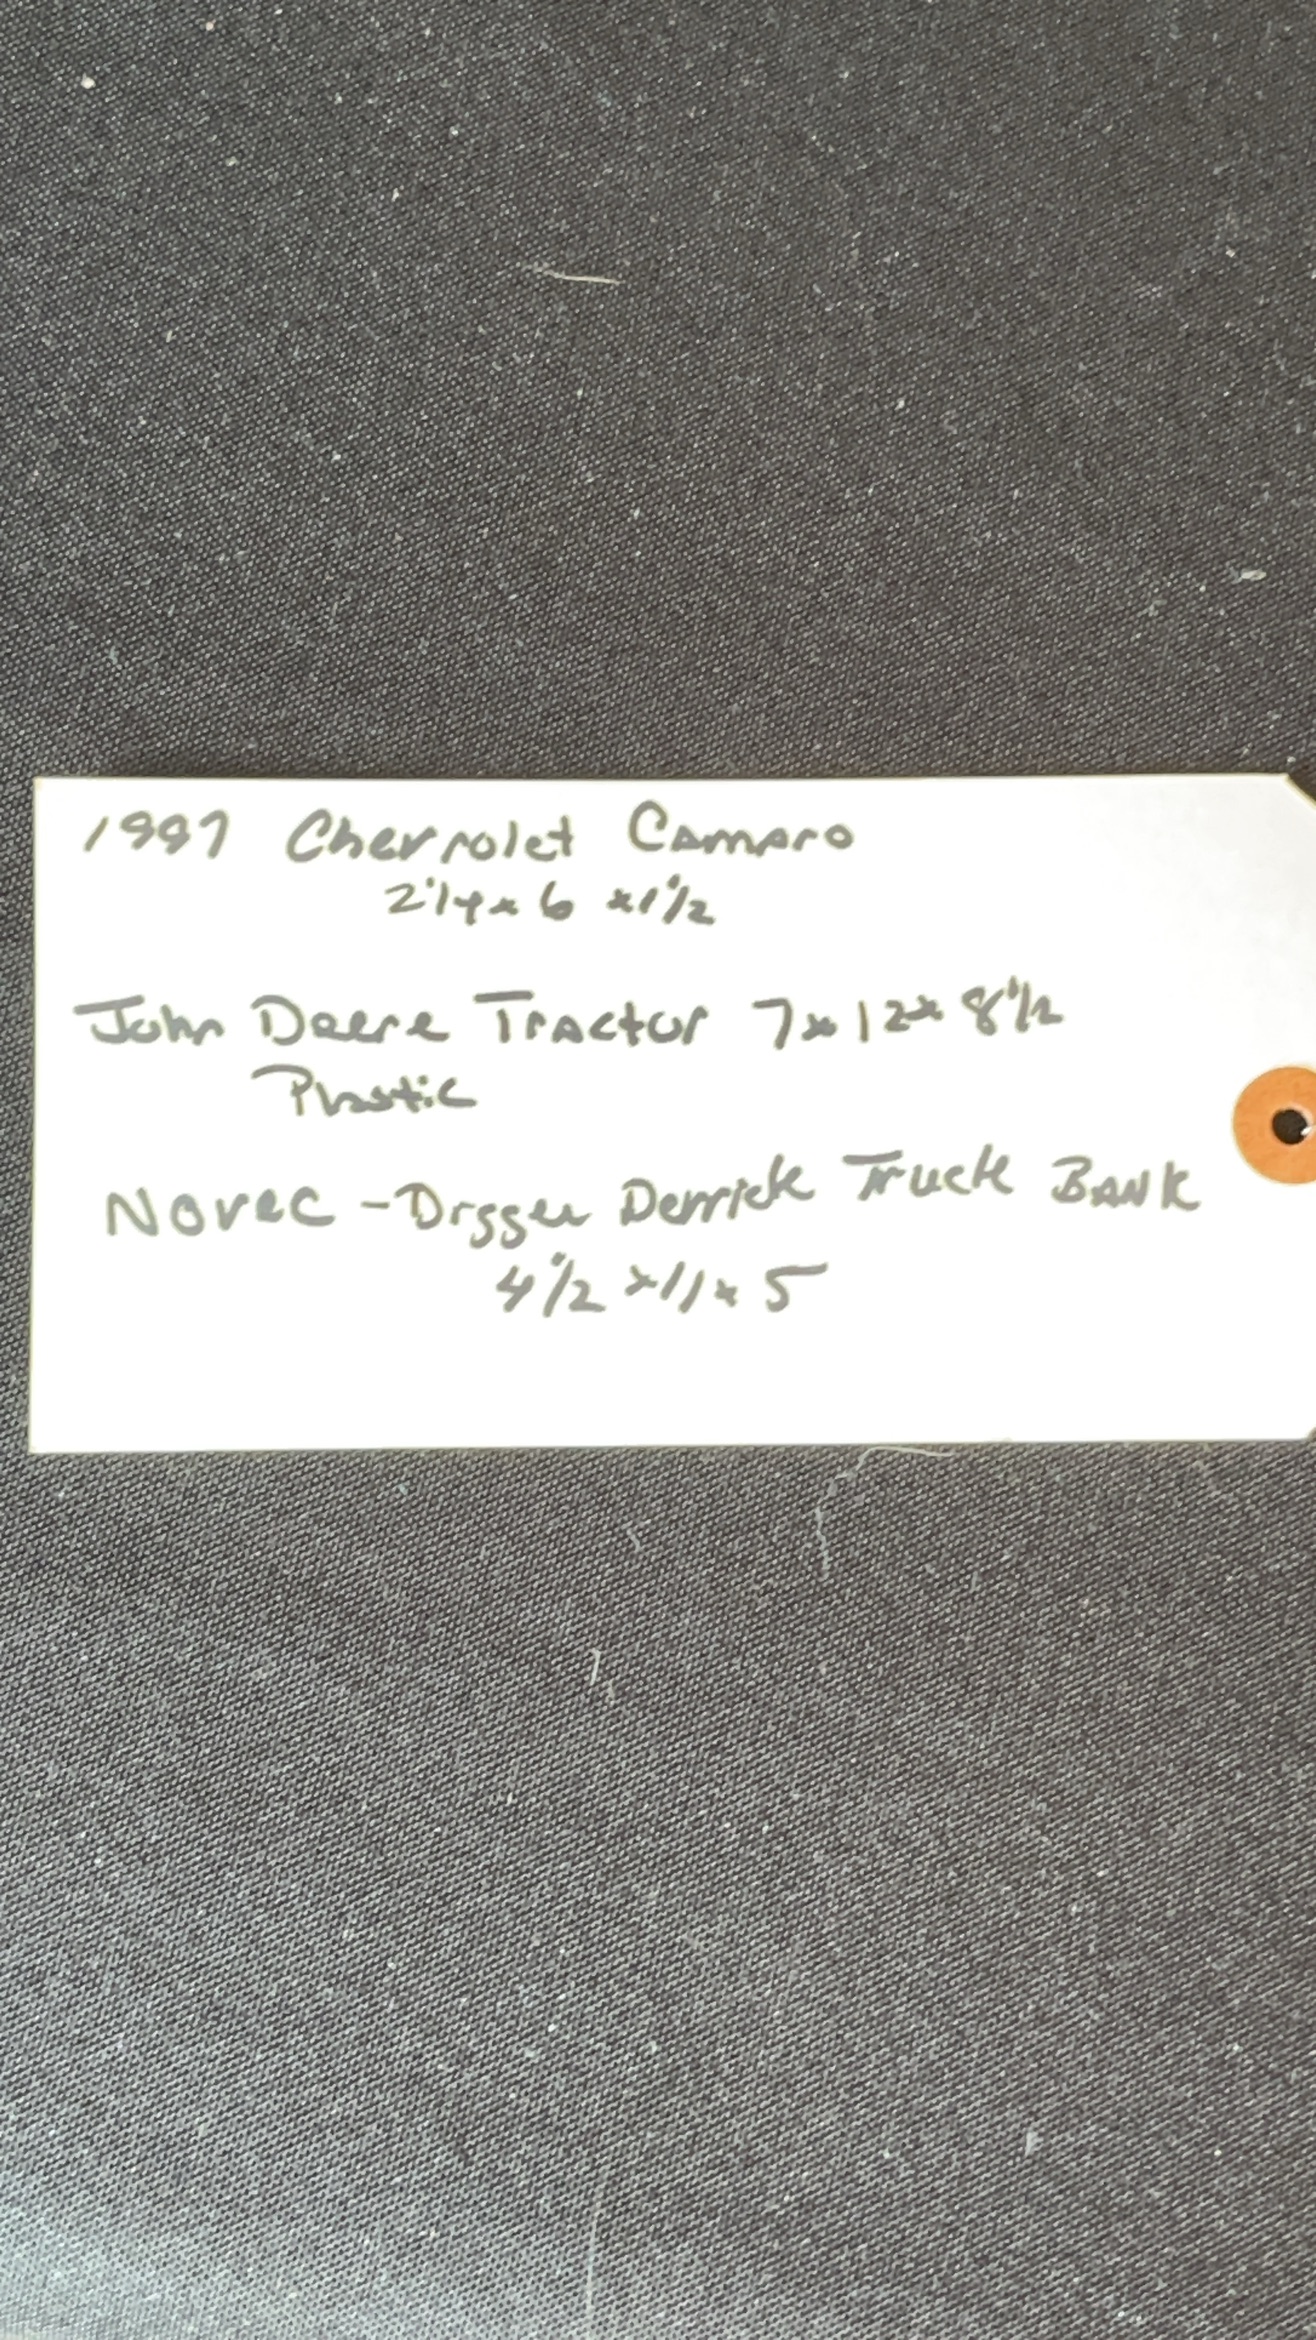 1997 Chevrolet Camaro
2 1/4 x 6 x 1 1/2
John Deere Tractor 7 x 12 x 8 1/2
Plastic
Novec - Digger Derrick Truck BANK
4 1/2 x 11 x 5